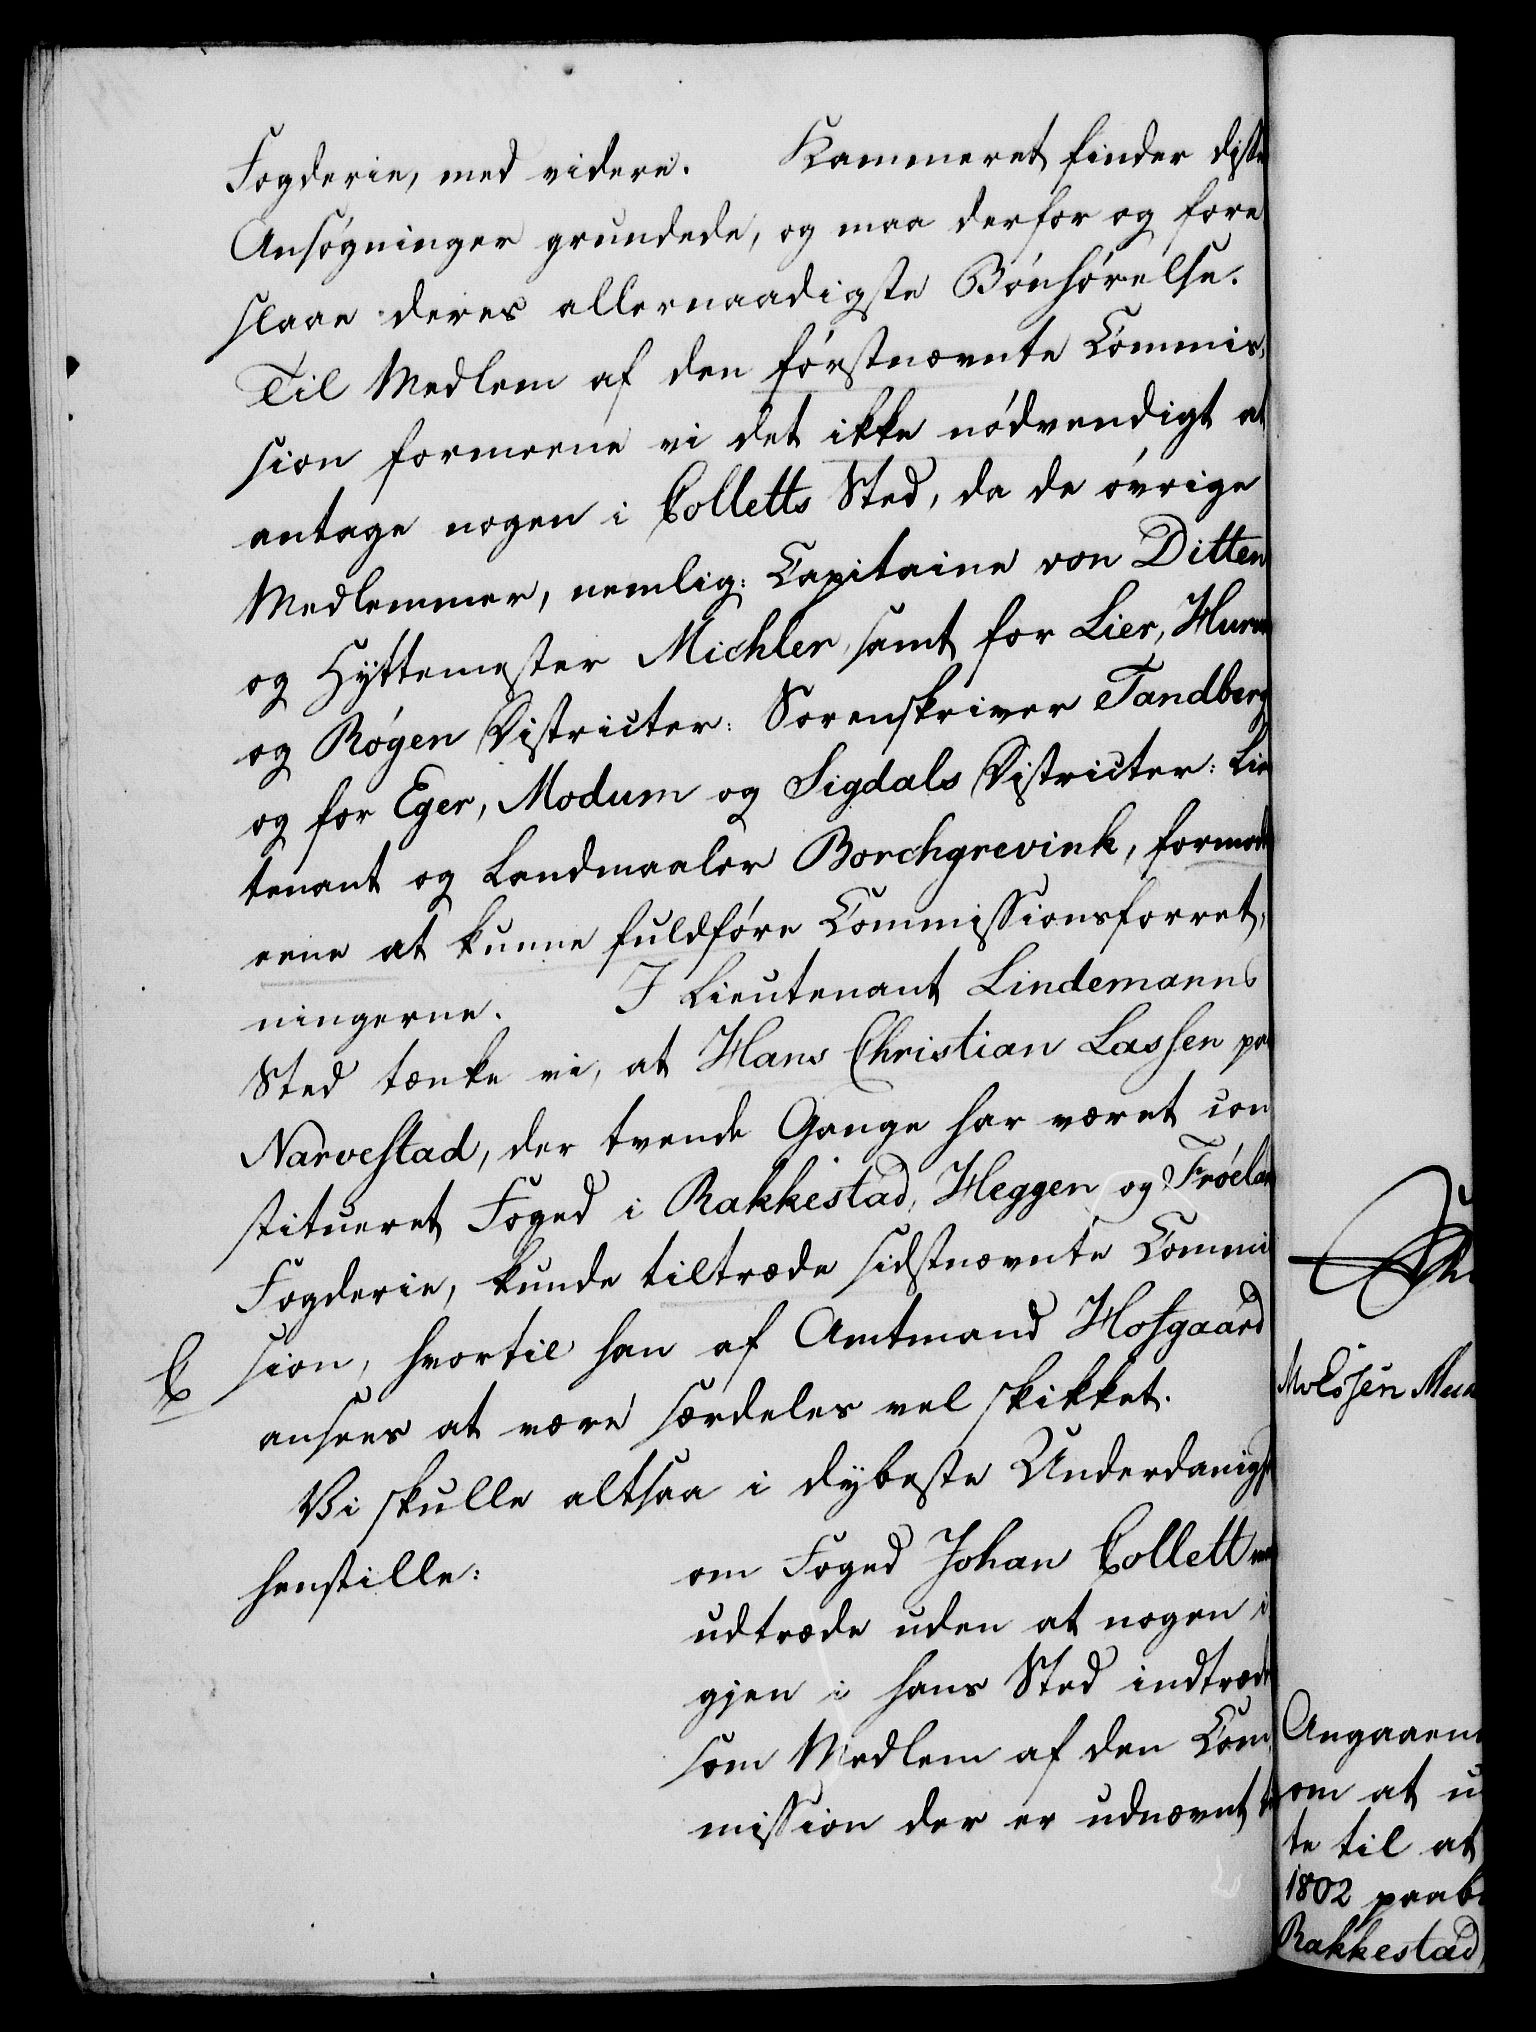 Fogderie, med videre. Kammeret finder disse
Ansøgninger grundede, og maa derfor og fore
slaae deres allernaadigste Bønhørelse.
Til Medlem af den førstnævnte Commis,
sion formeene vi det ikke nødvendigt at
antage nogen i Colletts Sted, da de øvrige
Medlemmer, nemlig: Capitaine von Ditten
og Hyttemester Michler, samt for Lier, Hurum
og Røgen Districter: Sorenskriver Tandberg
og for Eger, Modum og Sigdals Districter: Lieu
tenant og Landmaaler Borchgrevink, formod
eene at kunne fuldføre Commissionsforret,
ningerne. I Lieutenant Lindemanns
Sted tænke vi, at Hans Christian Lassen paa
Narvestad, der tvende Gange har været con
stitueret Foged i Rakkestad, Heggen og Frøeland
Fogderie, kunde tiltræde sidstnævnte Commi
sion, hvortil han af Amtmand Hofgaard
ansees at være særdeles vel skikket.
Vi skulle altsaa i dybeste Underdanigst
henstille:
om Foged Johan Collett maa
udtræde uden at nogen i
gjen i hans Sted indtræde
som Medlem af den Com,
mission der er udnævnt til
Angaaen
om at u
te til at
1802 paabe
Rakkestad,